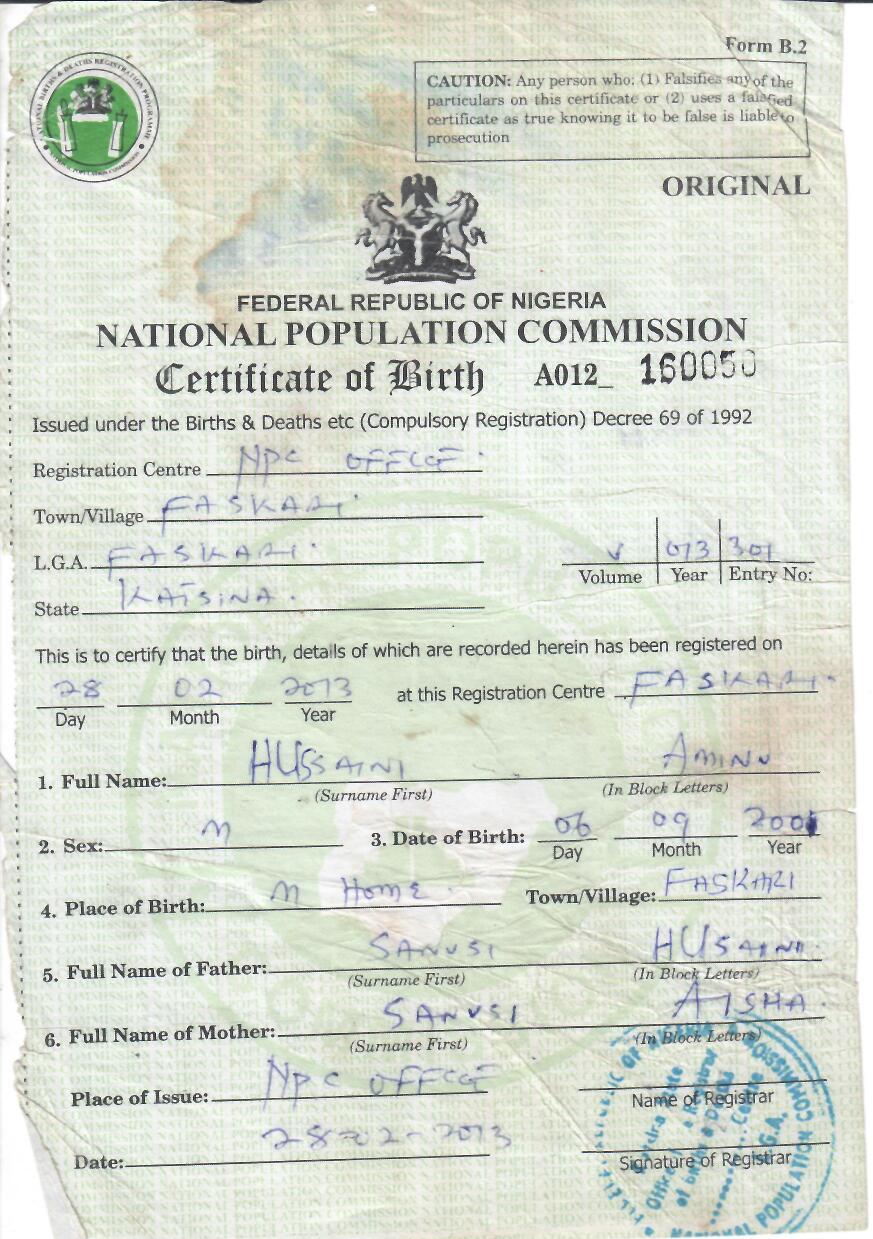 Form B.2
NATIONAL BIRTHS & DEATHS REGISTRATION PROGRAMME
NATIONAL POPULATION COMMISSION
CAUTION: Any person who: (1) Falsifies any of the
particulars on this certificate or (2) uses a falsified
certificate as true knowing it to be false is liable to
prosecution
ORIGINAL
FEDERAL REPUBLIC OF NIGERIA
NATIONAL POPULATION COMMISSION
Certificate of Birth A012_ 160050
Issued under the Births & Deaths etc (Compulsory Registration) Decree 69 of 1992
Registration Centre NPC OFFCGE
Town/Village FASKARI
L.G.A. FASKARI
V 013 301
Volume Year Entry No:
State KATSINA.
This is to certify that the birth, details of which are recorded herein has been registered on
28 02 2013 at this Registration Centre FASKARI.
Day Month Year
1. Full Name: HUSSAINI AMINU
(Surname First) (In Block Letters)
2. Sex: M 3. Date of Birth: 06 09 2001
Day Month Year
4. Place of Birth: M Home. Town/Village: FASKARI
5. Full Name of Father: SANUSI HUSAINI.
(Surname First) (In Block Letters)
6. Full Name of Mother: SANUSI AISHA.
(Surname First) (In Block Letters)
Place of Issue: NPC OFFCGE
Name of Registrar
Date: 28-02-2013
Signature of Registrar
NATIONAL POPULATION COMMISSION